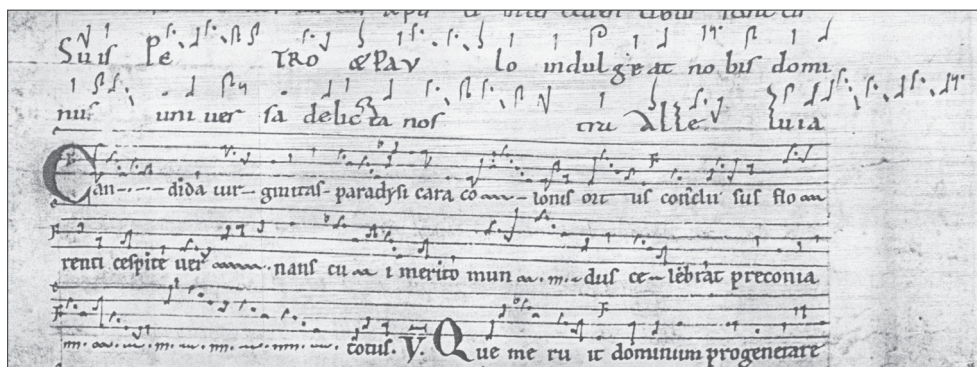 Suis Pe TRO & PAV lo indulgeat no bis domi
nus uni uer sa delicta nos tru Alle luia
Can---- dida uir- ginitas- paradysi cara co - lonis ort us conclu sus flo
renti cespite uer nans cu i merito mun dus ce- lebrat preconia
totus. V. Que me ru it dominum progenerare